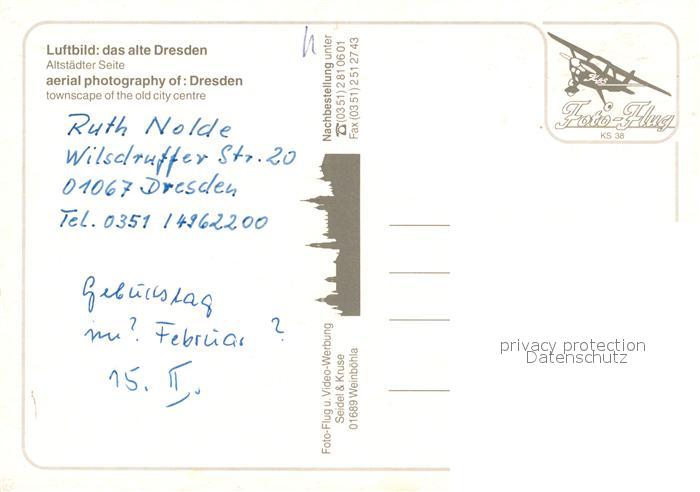 Luftbild: das alte Dresden
Altstädter Seite
aerial photography of: Dresden
townscape of the old city centre
Ruth Nolde
Wilsdruffer Str. 20
01067 Dresden
Tel. 0351 / 4962200
Geburtstag
im? Februar ?
15. II.
Nachbestellung unter
☎(0351) 2 81 06 01
Fax (0351) 2 51 27 43
Foto-Flug u. Video-Werbung
Seidel & Kruse
01689 Weinböhla
K&S
Foto-Flug
KS 38
privacy protection
Datenschutz